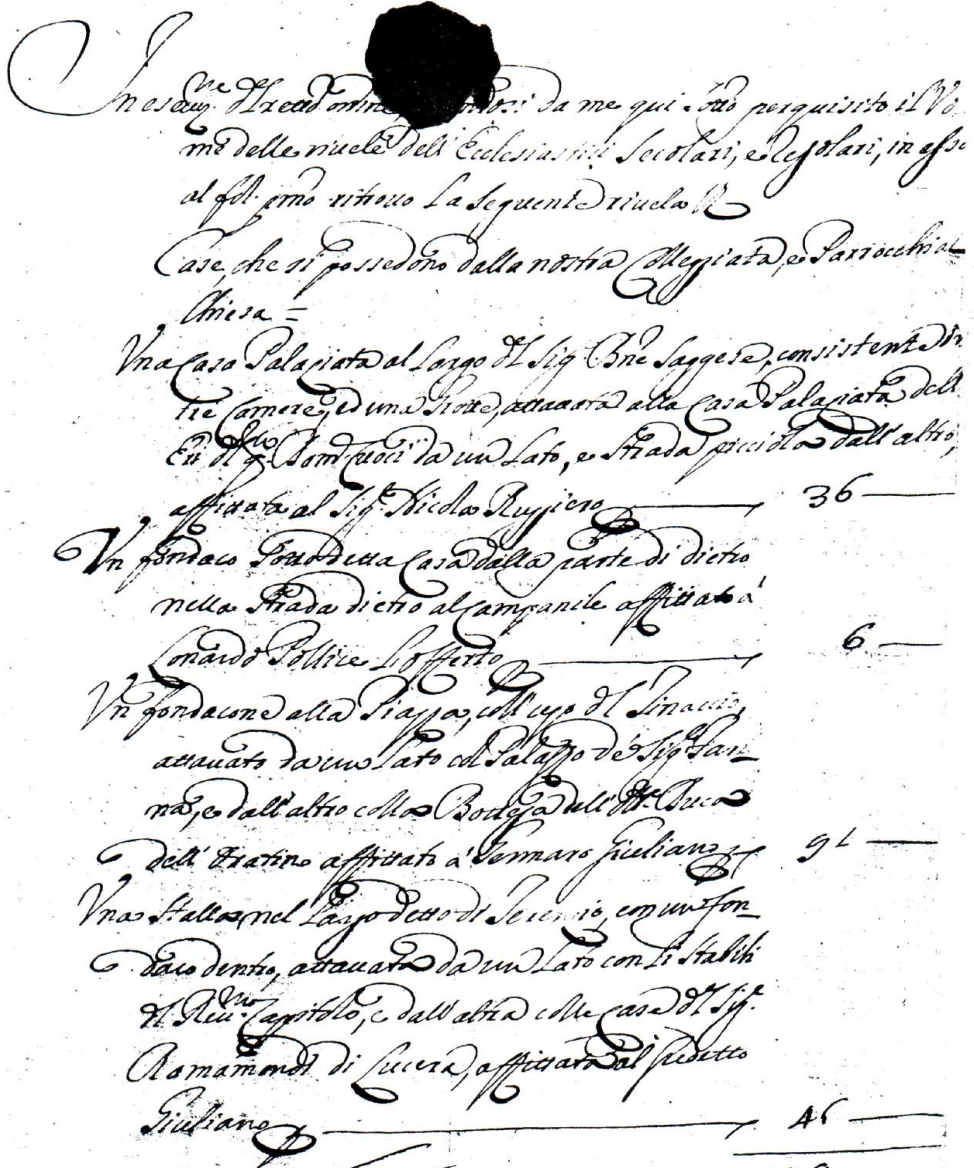 In esecu.ne d'l retto ordine da me qui sotto perquisito il Vo
me delle rivele dell' Ecclesiastici Secolari, e Regolari, in
al fol. pmo ritrovo la seguente rivela
Case, che si possedono dalla nostra Collegiata, e Parrocchial
Chiesa =
Una Casa Palaziata al Largo d'l Sig. Saggese, consistente in
tre Camere, ed una Grotta, attaccata alla Casa Palaziata dell
da un lato, e strada picciola dall' altro,
affittata al Sig.r Nicola Rugiero 36
Un fondaco sotto detta Casa dalla parte di dietro
nella strada dietro al Campanile affittato à
Lonardo Pollice Lofferto 6
Un fondacone alla Piazza, coll' uso d'l Tinaccio,
attaccato da un lato col Palazzo de' Sig.ri San_
na, e dall' altro colla Bottega dell' Duca
dell' Fratino affittato à Gennaro Giuliano 91
Una Stalla nel Largo detto di con un fon_
daco dentro, attaccata da un lato con li stabili
d'l Rev.mo Capitolo, e dall' altra colle case d'l Sig.r
Ramamondi di Lucera, affittata al sudetto
Giuliano 45